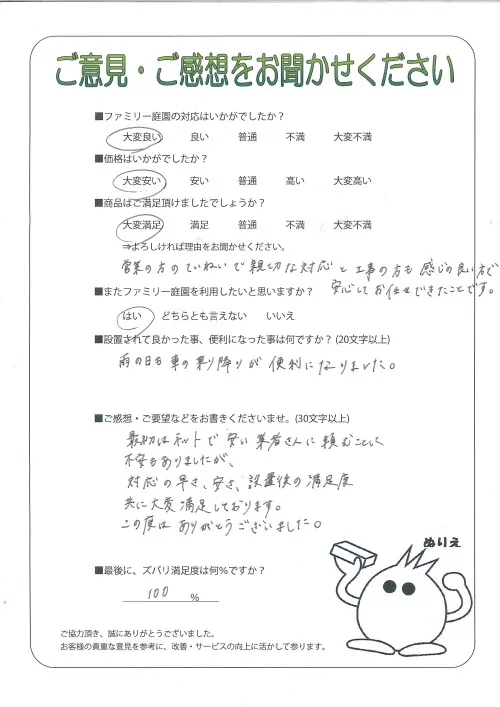 ご意見・ご感想をお聞かせください
■ファミリー庭園の対応はいかがでしたか？
大変良い 良い 普通 不満 大変不満
■価格はいかがでしたか？
大変安い 安い 普通 高い 大変高い
■商品はご満足頂けましたでしょうか？
大変満足 満足 普通 不満 大変不満
⇒よろしければ理由をお聞かせください。
営業の方のていねいで親切な対応と工事の方も感じの良い方で
安心してお任せできたことです。
■またファミリー庭園を利用したいと思いますか？
はい どちらとも言えない いいえ
■設置されて良かった事、便利になった事は何ですか？(20文字以上)
雨の日も車の乗り降りが便利になりました。
■ご感想・ご要望などをお書きくださいませ。(30文字以上)
最初はネットで安い業者さんに頼むことに
不安もありましたが、
対応の早さ、安さ、設置後の満足度
共に大変満足しております。
この度はありがとうございました。
ぬりえ
■最後に、ズバリ満足度は何％ですか？
100 %
ご協力頂き、誠にありがとうございました。
お客様の貴重な意見を参考に、改善・サービスの向上に活かして参ります。